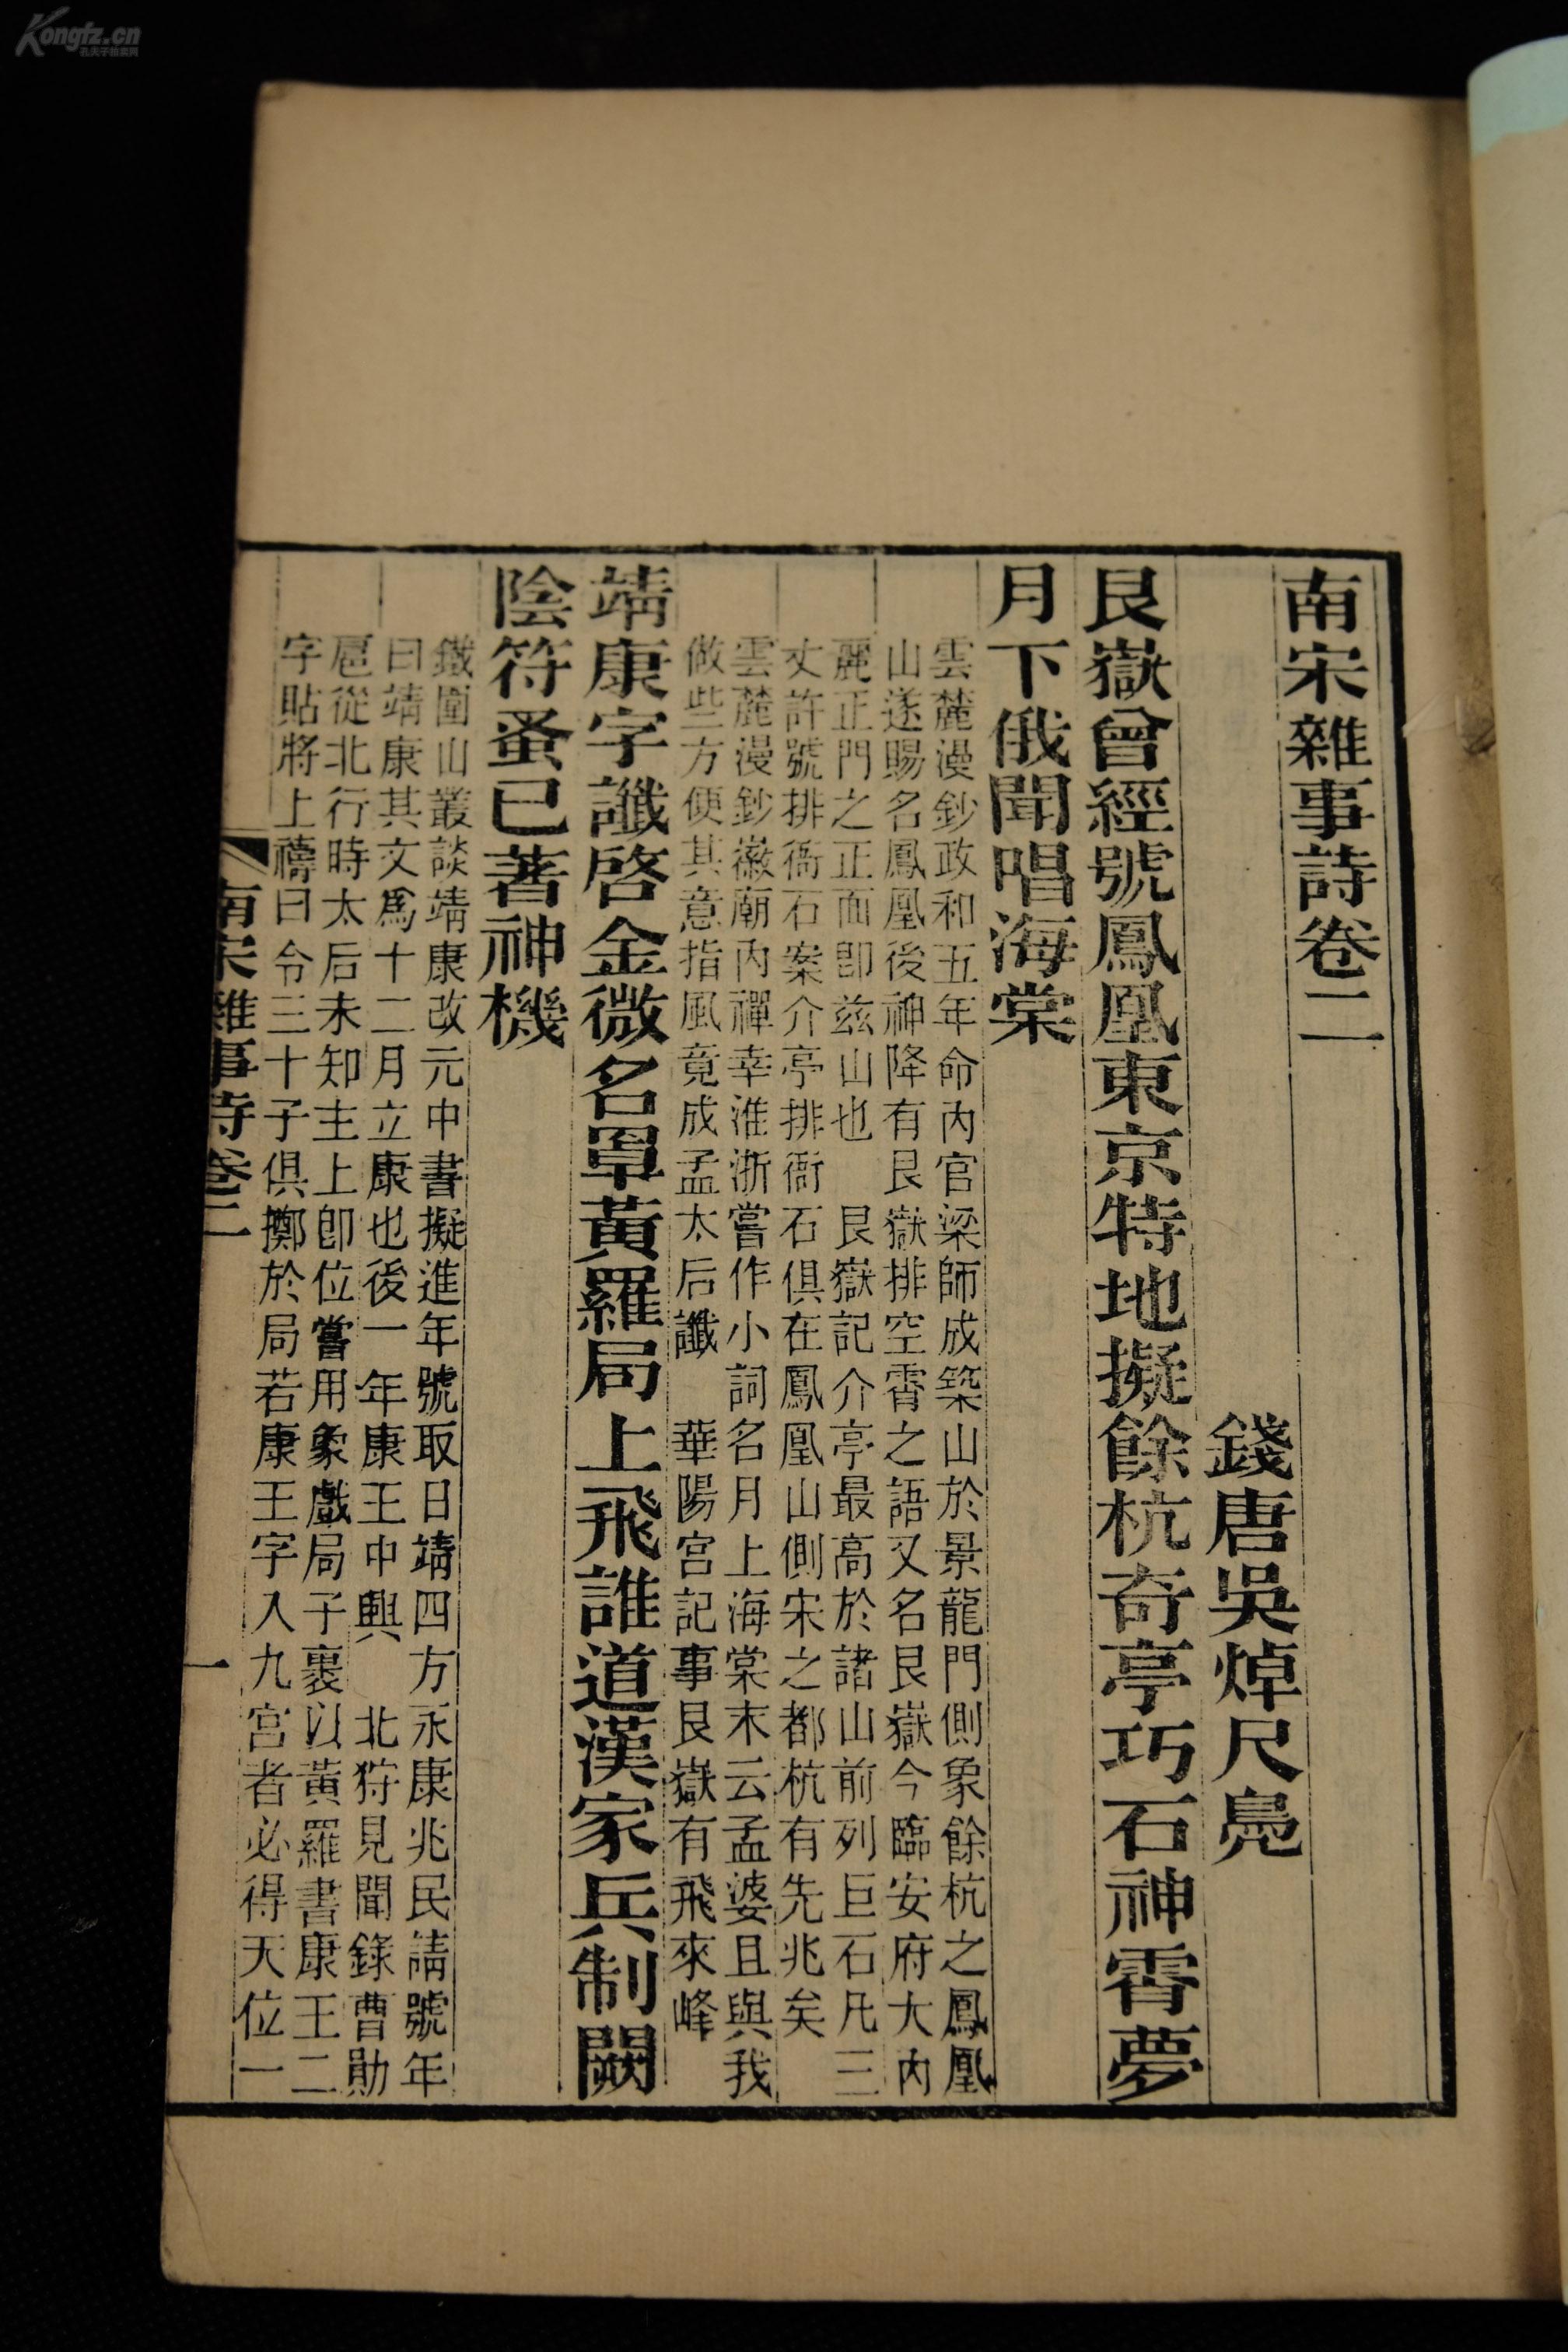 Kongfz.cn
孔夫子拍卖网
南宋雜事詩卷二
錢唐吳焯尺鳧
艮嶽曾經號鳳凰東京特地擬餘杭奇亭巧石神霄夢
月下俄聞唱海棠
雲麓漫鈔政和五年命內官梁師成築山於景龍門側象餘杭之鳳凰
山遂賜名鳳凰後神降有艮嶽排空霄之語又名艮嶽今臨安府大內
麗正門之正面卽兹山也　艮嶽記介亭最高於諸山前列巨石凡三
丈許號排衙石案介亭排衙石俱在鳳凰山側宋之都杭有先兆矣
雲麓漫鈔徽廟內禪幸淮浙嘗作小詞名月上海棠末云孟婆且與我
做些方便其意指風竟成孟太后讖　華陽宮記事艮嶽有飛來峰
靖康字讖啓金微名罩黃羅局上飛誰道漢家兵制闕
陰符蚤已著神機
鐵圍山叢談靖康改元中書擬進年號取日靖四方永康兆民請號年
曰靖康其文爲十二月立康也後一年康王中興　北狩見聞錄曹勛
扈從北行時太后未知主上卽位嘗用象戲局子裹以黃羅書康王二
字貼將上禱曰令三十子俱擲於局若康王字入九宮者必得天位一
南宋雜事詩卷二
一